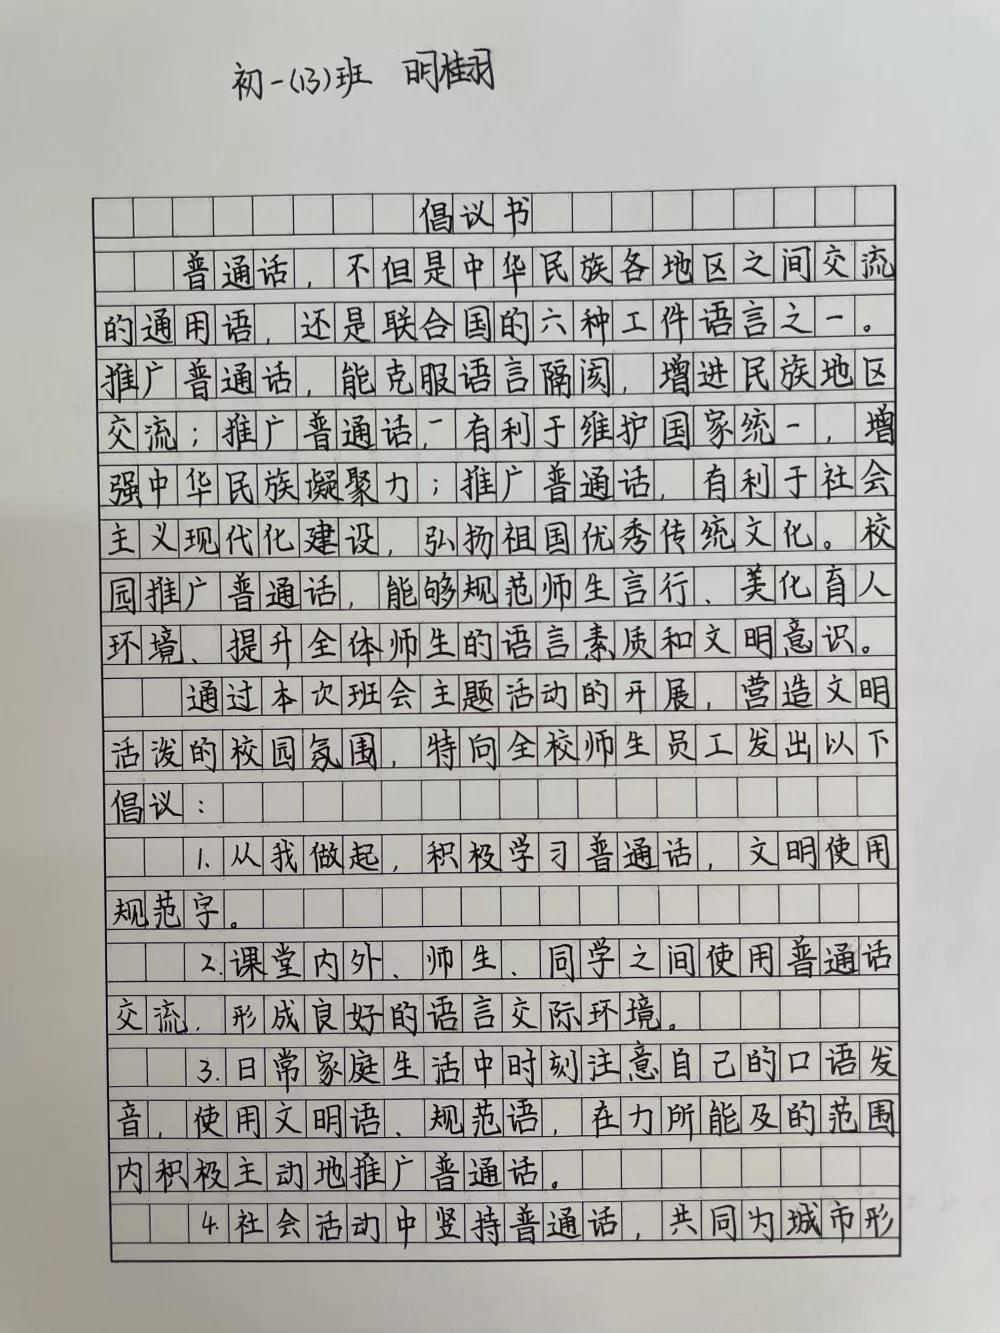 初一(13)班 明桂羽
倡议书
普通话，不但是中华民族各地区之间交流
的通用语，还是联合国的六种工件语言之一。
推广普通话，能克服语言隔阂，增进民族地区
交流；推广普通话，有利于维护国家统一，增
强中华民族凝聚力；推广普通话，有利于社会
主义现代化建设，弘扬祖国优秀传统文化。校
园推广普通话，能够规范师生言行、美化育人
环境、提升全体师生的语言素质和文明意识。
通过本次班会主题活动的开展，营造文明
活泼的校园氛围，特向全校师生员工发出以下
倡议：
1.从我做起，积极学习普通话，文明使用
规范字。
2.课堂内外、师生、同学之间使用普通话
交流，形成良好的语言交际环境。
3.日常家庭生活中时刻注意自己的口语发
音，使用文明语、规范语，在力所能及的范围
内积极主动地推广普通话。
4.社会活动中竖持普通话，共同为城市形